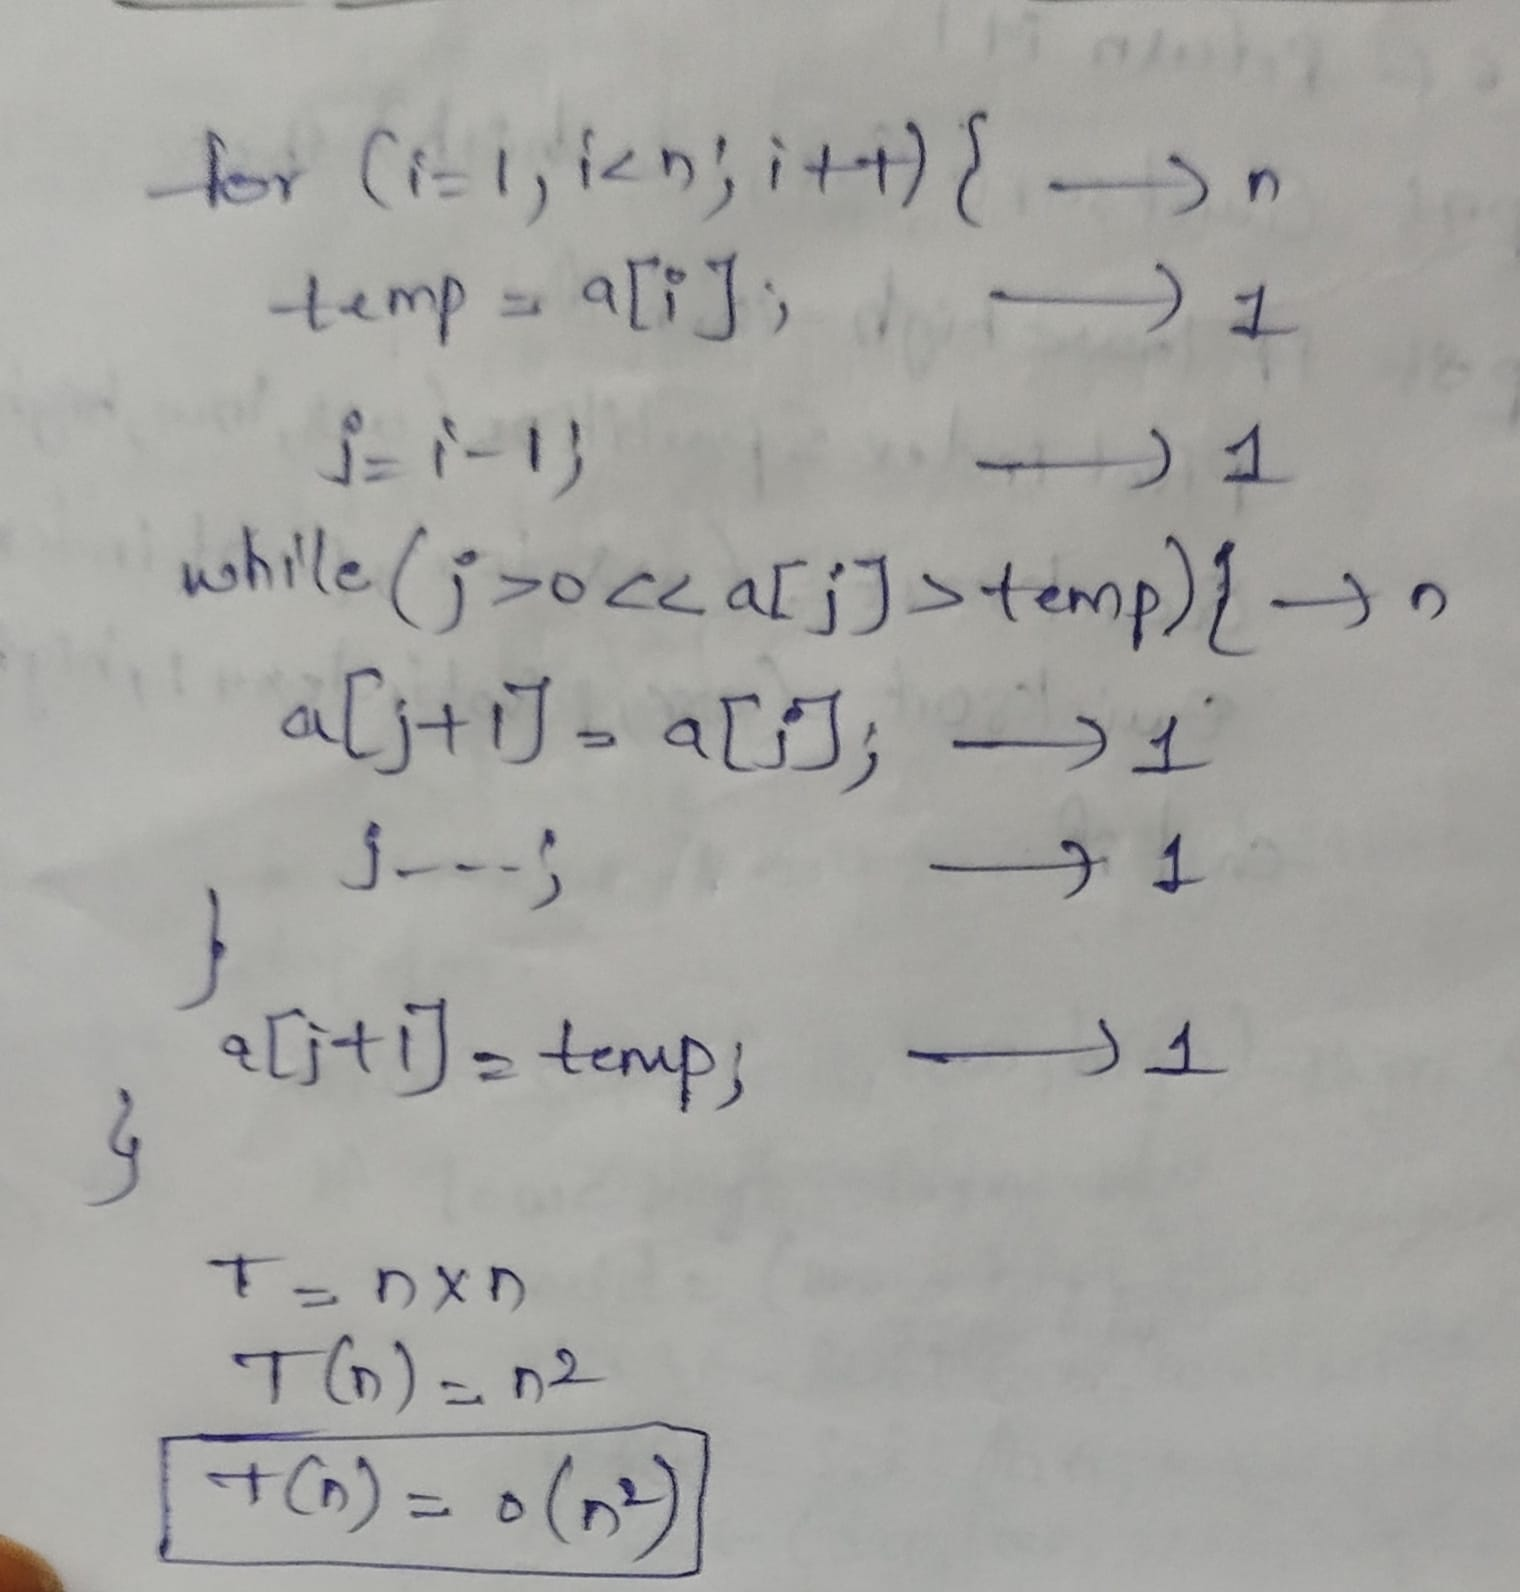 for (i=1, i<n; i++) { → n
temp = a[i]; → 1
j=i-1; → 1
while (j>0 << a[j]>temp){ → n
a[j+1] = a[j]; → 1
j---; → 1
}
a[j+1] = temp; → 1
}
T = n×n
T(n) = n²
T(n) = o(n²)